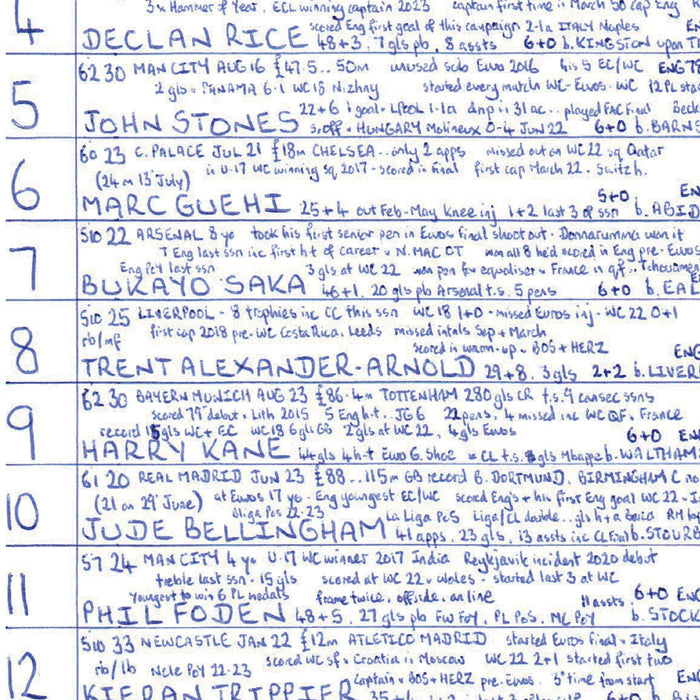 4
3x Hammer of Year. ECL winning captain 2023 captain first time in March 50 cap Eng
scored Eng first goal of this campaign 2-1a ITALY Naples
DECLAN RICE 48+3. 7 gls pb, 8 assts 6+0 b. KINGSTON upon
5
62 30 MAN CITY AUG 16 £47.5.. 50m unused sub Euro 2016 4 is 5 EC/WC ENG
2 gls v PANAMA 6-1 WC 18 Nizhny started every match WC-Euros-WC 12 PL
22+6 1 goal v LPOOL 1-1a dnp in 31 ac.. played FAC Final
JOHN STONES s.off v HUNGARY Molineux 0-4 JUN 22 6+0 b. BARNS
6
60 23 C. PALACE JUL 21 £18m CHELSEA.. only 2 apps missed out on WC 22 sq Qatar
(24 on 13 July) in U-17 WC winning sq 2017 - scored in final first cap March 22 v Switz h.
5+0 EN
MARC GUEHI 25+4 out Feb-May knee inj 1+2 last 3 of ssn b. ABID
7
510 22 ARSENAL 8 yo took his first senior pen in Euros final shoot out - Donnarumma won it
7 Eng last ssn inc first ht of career v N. MAC OT won all 8 he'd scored in Eng pre-Euros
Eng PoY last ssn 3 gls at WC 22 won pen for equaliser v France in qf.. Tchouameni
BUKAYO SAKA 46+1. 20 gls pb Arsenal t.s. 5 pens 6+0 b. EAL
8
510 25 LIVERPOOL - 8 trophies inc CC this ssn WC 18 1+0 - missed Euros inj - WC 22 0+1
rb/mf first cap 2018 pre-WC Costa Rica, Leeds missed intnls Sep + March
scored in warm-up v BOS + HERZ ENG
TRENT ALEXANDER-ARNOLD 29+8. 3 gls 2+2 b. LIVER
9
62 30 BAYERN MUNICH AUG 23 £86.4m TOTTENHAM 280 gls CR t.s. 9 consec ssns
scored 79" debut v Lith 2015 5 Eng h-t. JG 6 22 pens, 4 missed inc WC QF v France
record 15 gls WC + EC WC 18 6 gls GB 2 gls at WC 22, 4 gls Euros
6+0 EN
HARRY KANE 44 gls 4 h-t Euro G. Shoe = CL t.s. 8 gls Mbappe b. WALTHAM
10
61 20 REAL MADRID JUN 23 £88...115m GB record B. DORTMUND. BIRMINGHAM C no
(21 on 29 June) at Euros 17 yo - Eng youngest EC/WC scored Eng's + his first Eng goal WC 22 v I
Bliga PoS 22-23 La Liga PoS Liga/CL double.. gls h+a Barca RM
JUDE BELLINGHAM 41 apps. 23 gls, 13 assts inc CL final b. STOURB
11
57 24 MAN CITY 4 yo U-17 WC winner 2017 India Reykjavik incident 2020 debut
treble last ssn - 15 gls scored at WC 22 v Wales - started last 3 at WC
Youngest to win 6 PL medals frame twice, offside, on line 11 assts 6+0 ENG
PHIL FODEN 48+5. 27 gls pb FW FoY, PL PoS, MC PoY b. STOC
12
510 33 NEWCASTLE JAN 22 £12m ATLETICO MADRID started Euros final v Italy
rb/lb Ncle PoY 22-23 scored WC sf v Croatia in Moscow WC 22 2+1 started first two
captain v BOS+HERZ pre-Euros. 5th time from start EN
KIERAN TRIPPIER